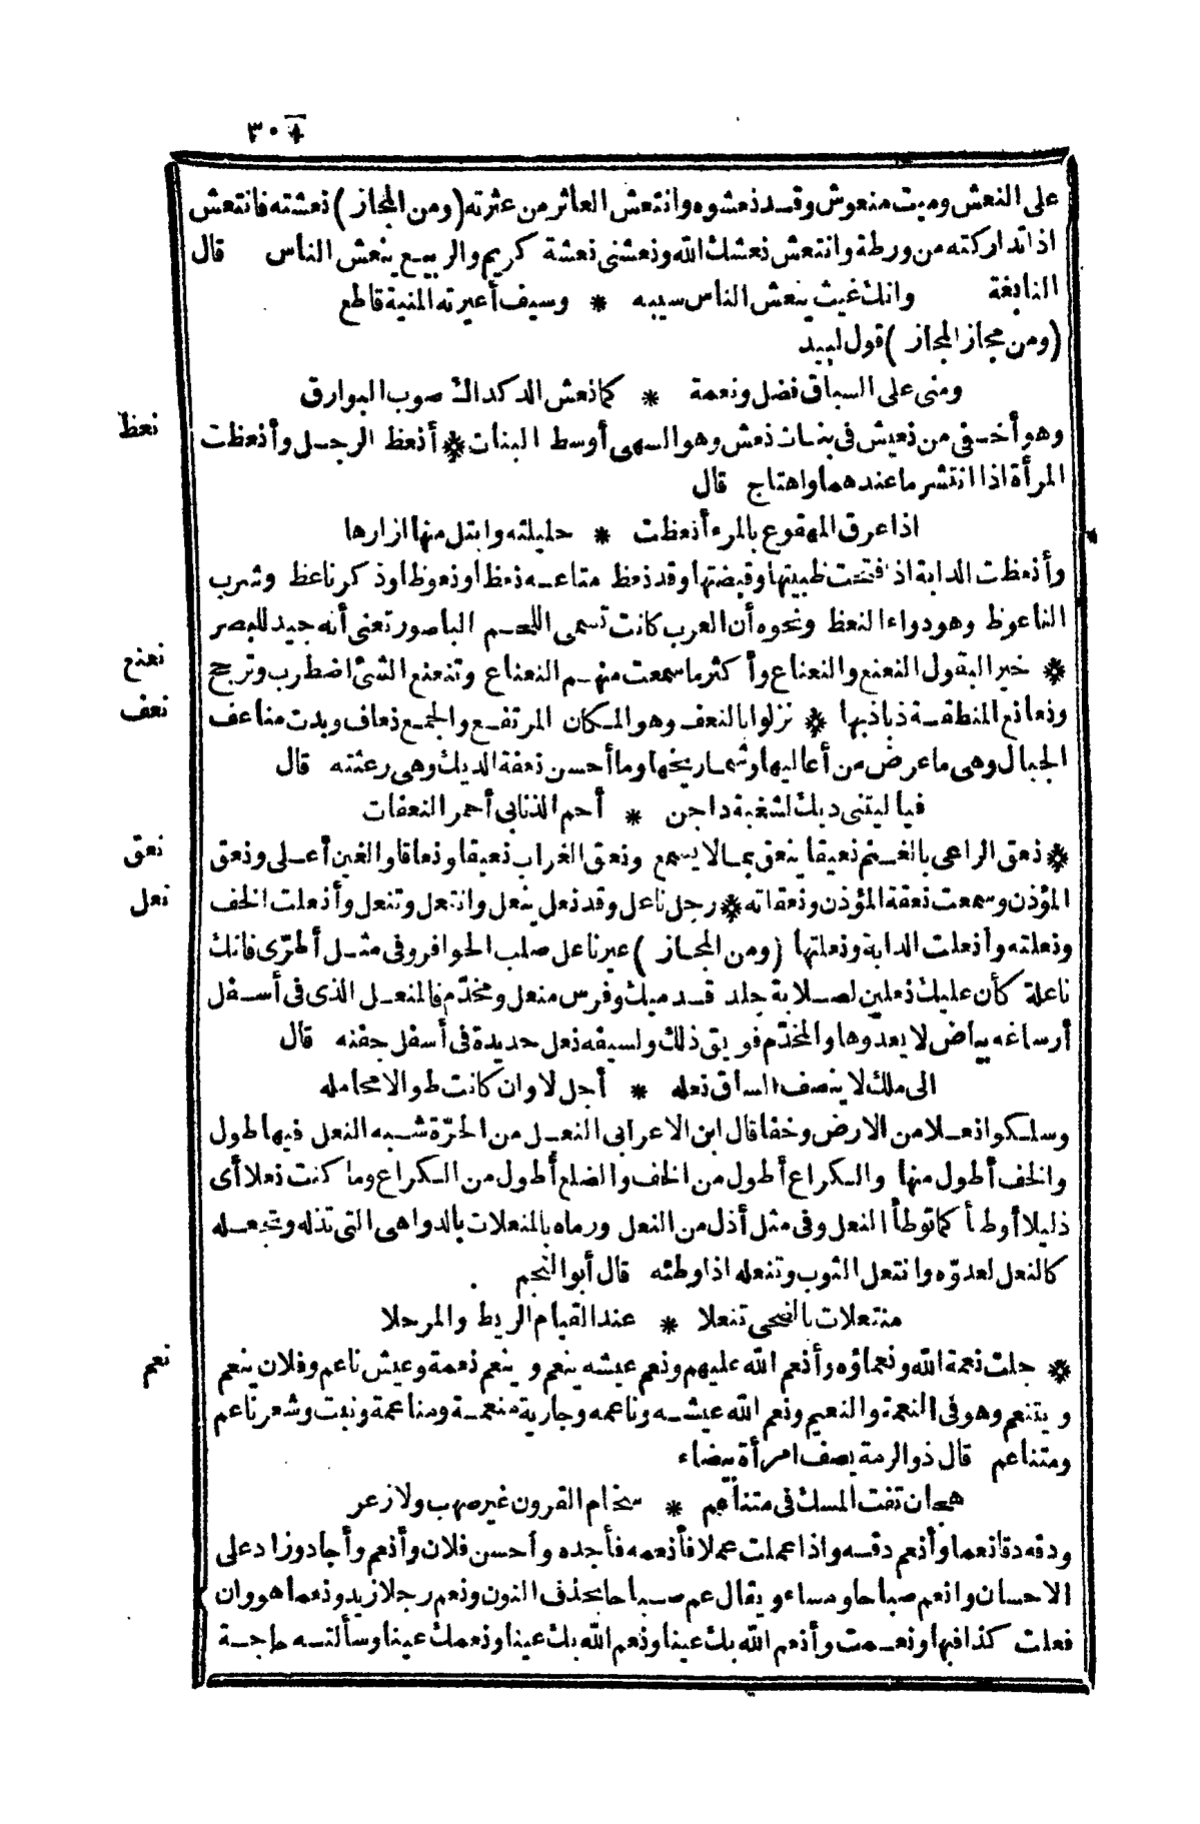 ٣٠٤
على النعش وميت منعوش وقد نعشوه وانتعش العاثر من عثرته (ومن المجاز) نعشته فانتعش
اذا تداركته من ورطة وانتعش نعشك الله ونعشنى نعشة كريم والربيع ينعش الناس قال
النابغة وانك غيث ينعش الناس سيبه * وسيف أعيرته المنية قاطع
(ومن مجاز المجاز) قول لبيد
ومنى على السباق فضل ونعمة * كما نعش الدكداك صوب البوارق
نعظ
وهو أخفى من نعيش فى بنات نعش وهو السهى أوسط البنات * أنعظ الرجل وأنعظت
المرأة اذا انتشر ما عندهما واهتاج قال
اذا عرق المهقوع بالمرء أنعظت * حليلته وابتل منها ازارها
وأنعظت الدابة اذا فتحت ظبيتها وقبضتها وقد نعظ متاعه نعظا ونعوظا وذكر ناعظ وشرب
الناعوظ وهو دواء النعظ ونحوه أن العرب كانت تسمى اللحم الباصور تعنى أنه جيد للبصر
نعنع
* خير البقول النعنع والنعناع وأكثر ما سمعت منهم النعناع وتنعنع الشئ اضطرب وترجح
نعف
ونعانع المنطقة ذباذبها * نزلوا بالنعف وهو المكان المرتفع والجمع نعاف وبدت مناعف
الجبال وهى ما عرض من أعاليها وشماريخها وما أحسن نعفة الديك وهى رعثته قال
فيا ليتنى ديك لشغبة داجن * أحم الذنابى أحمر النعفات
نعق
* نعق الراعى بالغنم نعيقا ينعق بما لا يسمع ونعق الغراب نعيقا ونعاقا والغين أعلى ونعق
نعل
المؤذن وسمعت نعقة المؤذن ونعقاته * رجل ناعل وقد نعل ينعل وانتعل وتنعل وأنعلت الخف
ونعلته وأنعلت الدابة ونعلتها (ومن المجاز) عير ناعل صلب الحوافر وفى مثل أطرّى فانك
ناعلة كأن عليك نعلين لصلابة جلد قدميك وفرس منعل ومخدّم فالمنعل الذى فى أسفل
أرساغه بياض لا يعدوها والمخدّم فويق ذلك ولسيفه نعل حديدة فى أسفل جفنه قال
الى ملك لا ينصف الساق نعله * أجل لا وان كانت طوالا محامله
وسلكوا نعلا من الارض وخفا قال ابن الاعرابى النعل من الحرّة شبه النعل فيها طول
والخف أطول منها والكراع أطول من الخف والضلع أطول من الكراع وما كنت نعلا أى
ذليلا أوطأ كما توطأ النعل وفى مثل أذل من النعل ورماه بالمنعلات بالدواهى التى تذله وتجعله
كالنعل لعدوّه وانتعل الثوب وتنعله اذا وطئه قال أبو النجم
منتعلات بالضحى تنعلا * عند القيام الريط والمرحلا
نعم
* جلت نعمة الله ونعماؤه وأنعم الله عليهم ونعم عيشه ينعم وينعم نعمة وعيش ناعم وفلان ينعم
ويتنعم وهو فى النعمة والنعيم ونعم الله عيشه وناعمه وجارية منعمة ومناعمة ونبت وشعر ناعم
ومتناعم قال ذو الرمة يصف امرأة بيضاء
هجان تفت المسك فى متناعم * سخام القرون غير صهب ولا زعر
ودقه دقا نعما وأنعم دقه واذا عملت عملا فأنعمه فأجده وأحسن فلان وأنعم وأجاد وزاد على
الاحسان وانعم صباحا ومساء ويقال عم صباحا بحذف النون ونعم رجلا زيد ونعما هو وان
فعلت كذا فبها ونعمت وأنعم الله بك عينا ونعم الله بك عينا ونعمك عينا وسألته حاجة